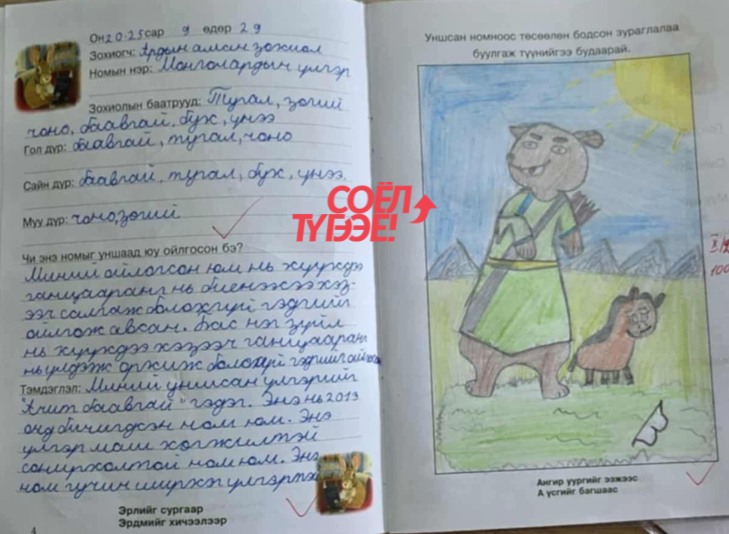 Он 2025 сар 9 өдөр 29
Зохиогч: Ардын аман зохиол
Номын нэр: Монгол ардын үлгэр
Зохиолын баатрууд: Тугал, зөгий
чоно, баавгай, бух, үнээ
Гол дүр: баавгай, тугал, чоно
Сайн дүр: баавгай, тугал, бух, үнээ.
Муу дүр: чоно, зөгий
Чи энэ номыг уншаад юу ойлгосон бэ?
Миний ойлгосон юм нь хүүхдээ
ганцааранг нь биенээсээ хэз-
ээч салгаж болохгүй гэдгийг
ойлгож авсан. Бас нэг зүйл
нь хүүхдээ хэзээч ганцааранг
нь үлдээж орхиж болохгүй гэдгийг
Тэмдэглэл: Миний уншсан үлгэрийг
"Ачит баавгай" гэдэг. Энэ нь 2013
онд бичигдсэн ном юм. Энэ
үлгэр маш хөгжилтэй
сонирхолтой ном юм. Энэ
ном гучин ширхэг үлгэртэй
Эрлийг сургаар
Эрдмийг хичээлээр
4
СОЁЛ
ТҮГЭЭЕ!
Уншсан номноос төсөөлөн бодсон зураглалаа
буулгаж түүнийгээ будаарай.
Ангир уургийг ээжээс
А үсгийг багшаас